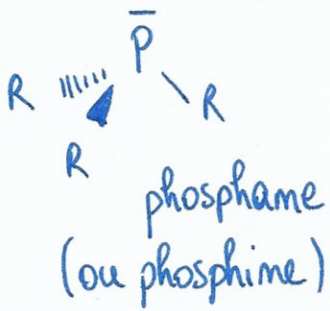 P
R
R
R
phosphane
(ou phosphine)